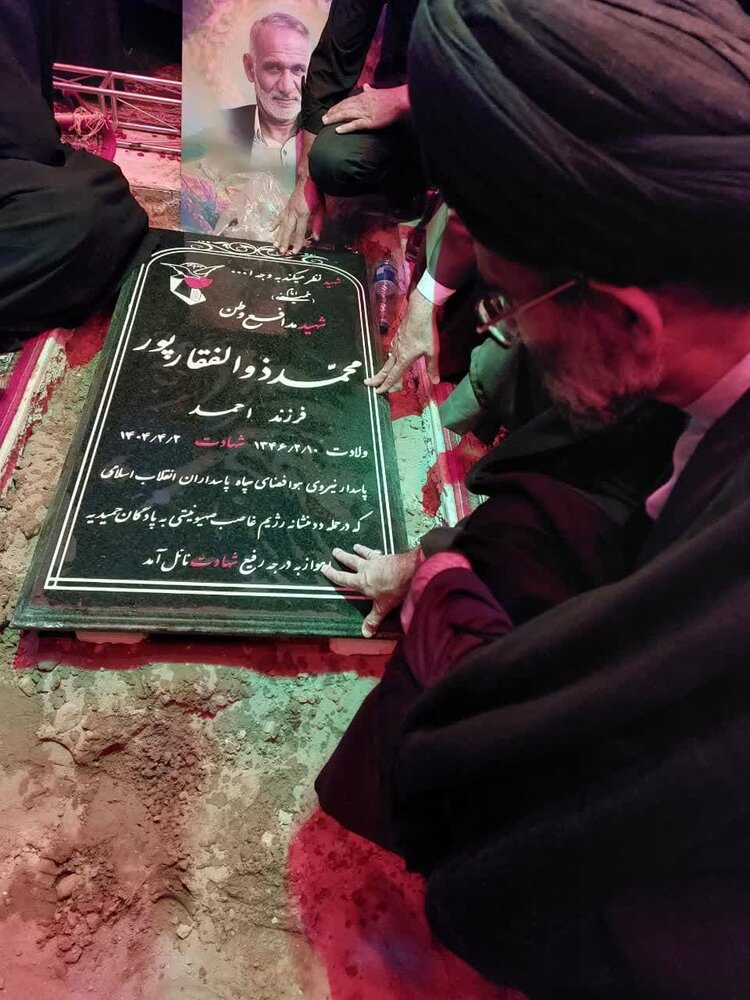 شهید نظر میکند به وجه ا...
شهید مدافع وطن
محمّد ذوالفقارپور
فرزند احمد
ولادت ۱۳۴۶/۲/۱۰ شهادت ۱۴۰۴/۴/۲
پاسدار نیروی هوافضای سپاه پاسداران انقلاب اسلامی
که در حمله ددمنشانه رژیم غاصب صهیونیستی به پادگان حمیدیه
اهواز به درجه رفیع شهادت نائل آمد